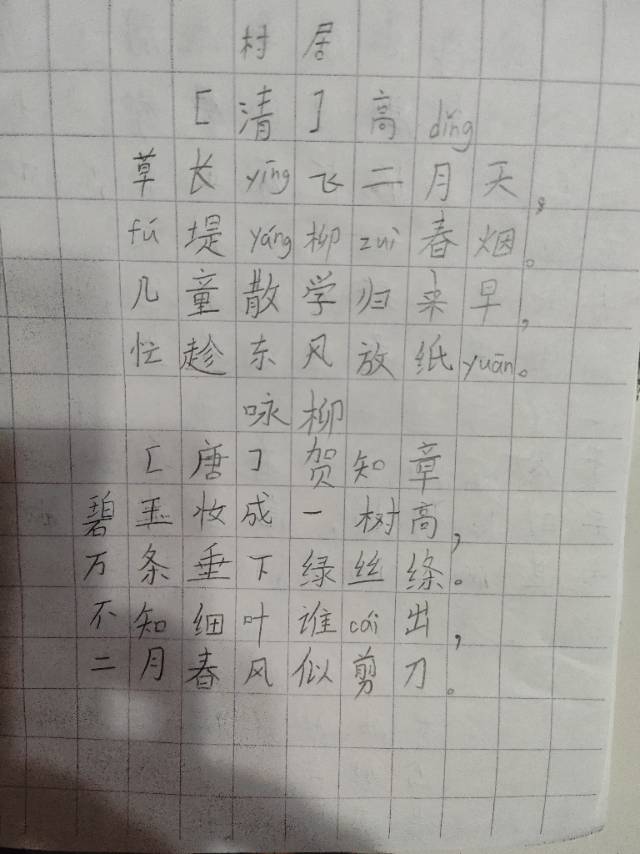 村居
[清]高dǐng
草长yīng飞二月天，
fú堤yáng柳zuì春烟。
儿童散学归来早，
忙趁东风放纸yuān。
咏柳
[唐]贺知章
碧玉妆成一树高，
万条垂下绿丝绦。
不知细叶谁cái出，
二月春风似剪刀。